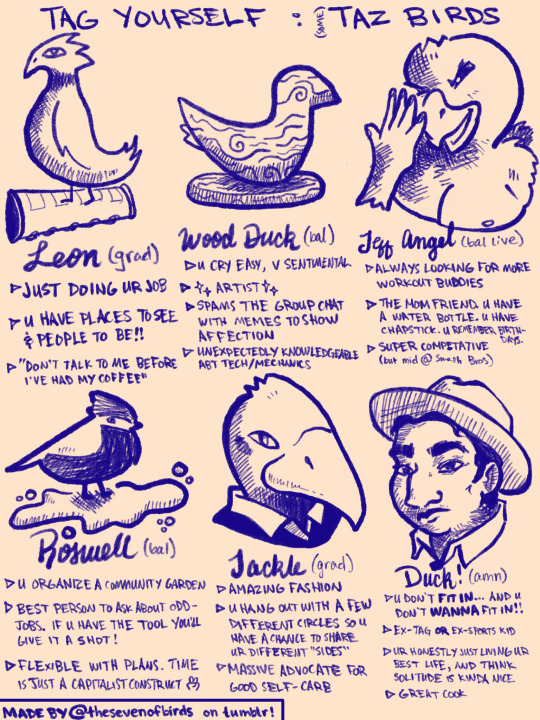 TAG YOURSELF : (SOME) TAZ BIRDS
Leon (grad)
▷JUST DOING UR JOB
▷U HAVE PLACES TO SEE
& PEOPLE TO BE!!
▷"DON'T TALK TO ME BEFORE
I'VE HAD MY COFFEE"
Wood Duck (bal)
▷U CRY EASY, V SENTIMENTAL
▷ ARTIST
▷SPAMS THE GROUP CHAT
WITH MEMES TO SHOW
AFFECTION
▷UNEXPECTEDLY KNOWLEDGEABLE
ABT TECH/MECHANICS
Jeff Angel (bal live)
▷ALWAYS LOOKING FOR MORE
WORKOUT BUDDIES
▷THE MOM FRIEND. U HAVE
A WATER BOTTLE. U HAVE
CHAPSTICK. U REMEMBER BIRTH-
DAYS.
▷SUPER COMPETATIVE
(but mid @ Smash Bros)
Roswell (bal)
▷U ORGANIZE A COMMUNITY GARDEN
▷BEST PERSON TO ASK ABOUT ODD-
JOBS. IF U HAVE THE TOOL YOU'LL
GIVE IT A SHOT!
▷FLEXIBLE WITH PLANS. TIME
IS JUST A CAPITALIST CONSTRUCT
Jackle (grad)
▷AMAZING FASHION
▷U HANG OUT WITH A FEW
DIFFERENT CIRCLES SO U
HAVE A CHANCE TO SHARE
UR DIFFERENT "SIDES"
▷MASSIVE ADVOCATE FOR
GOOD SELF-CARE
Duck! (amn)
▷U DON'T FIT IN... AND U
DON'T WANNA FIT IN!!
▷EX-TAG OR EX-SPORTS KID
▷UR HONESTLY JUST LIVING UR
BEST LIFE, AND THINK
SOLITUDE IS KINDA NICE
▷GREAT COOK
MADE BY @thesevenofbirds on tumblr!